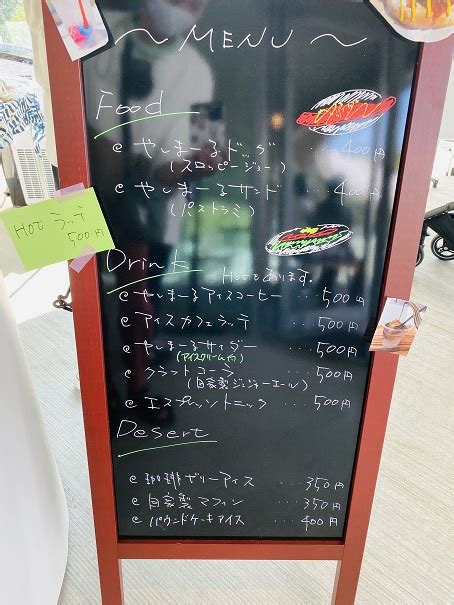 ～MENU～
Food
やしまーるドッグ ... 400円
(スロッピージョー)
やしまーるサンド ... 400円
(パストラミ)
Hot ラッテ
500円
Drink
Hotもあります。
やしまーるアイスコーヒー ... 500円
アイスカフェラッテ ... 500円
やしまーるサイダー ... 500円
(アイスクリーム付)
クラフトコーラ ... 500円
(自家製ジンジャーエール)
エスプレッソトニック ... 500円
Desert
珈琲ゼリーアイス ... 350円
自家製マフィン ... 350円
パウンドケーキアイス ... 400円